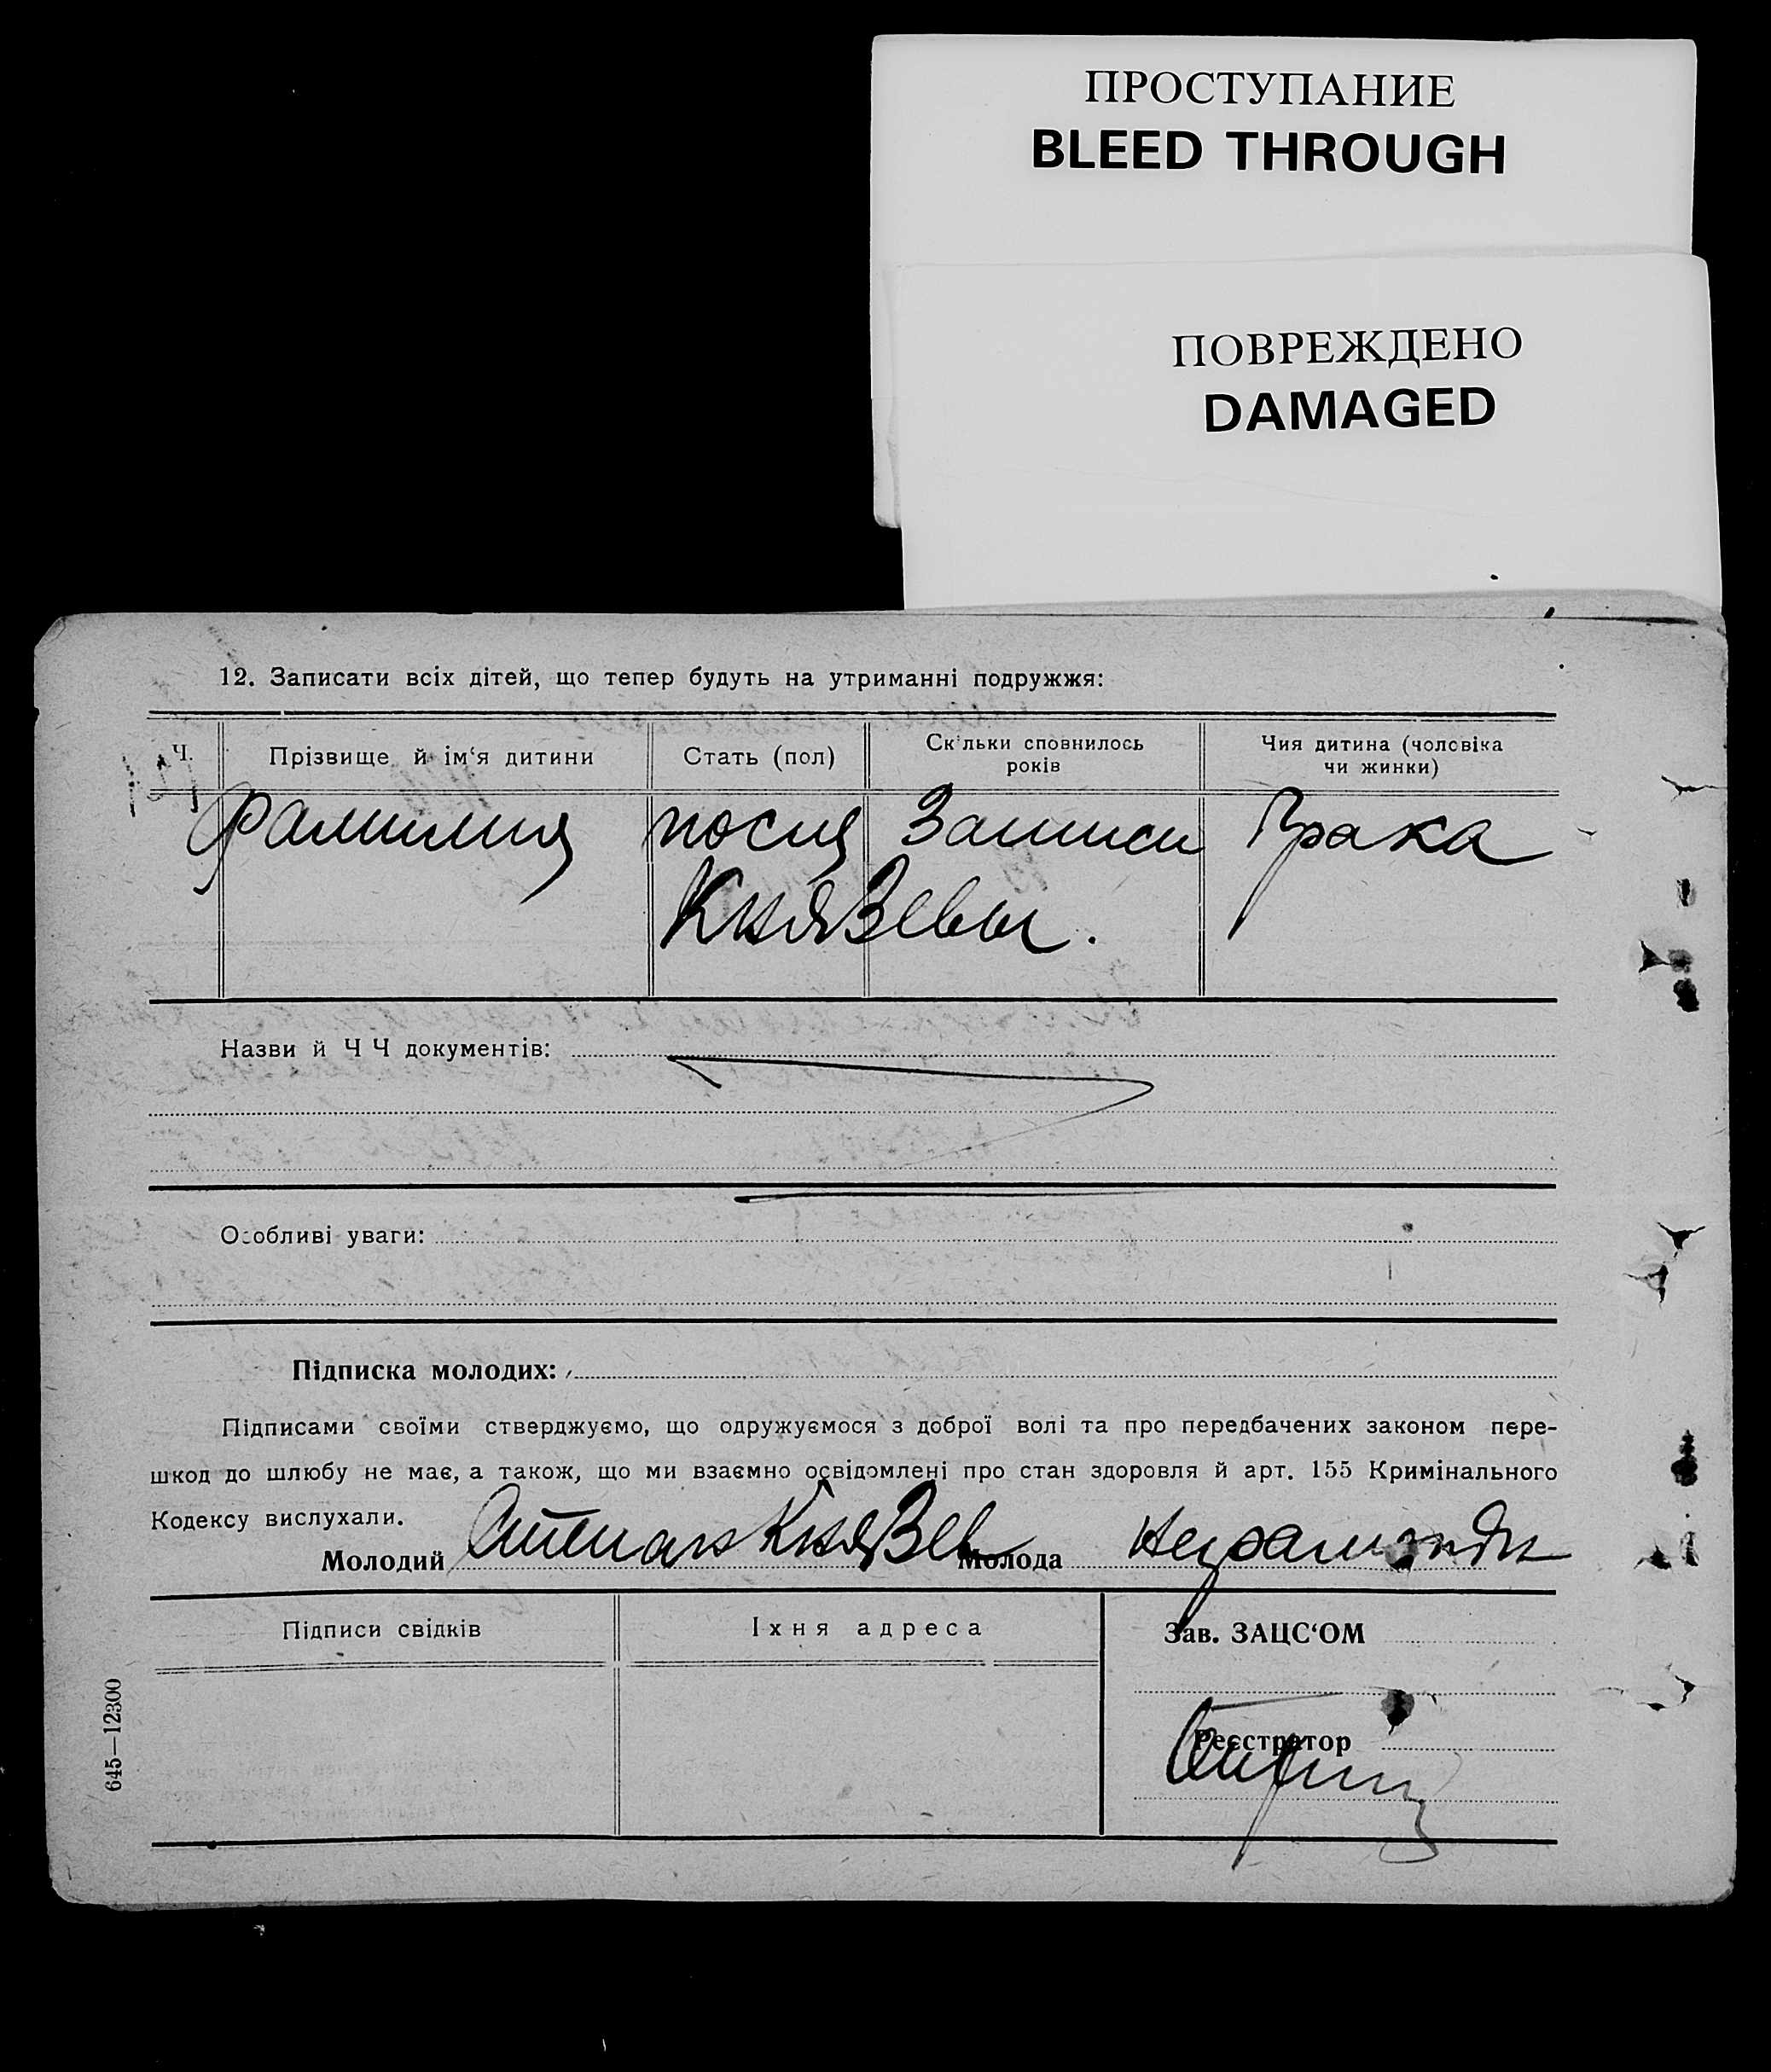 ПРОСТУПАНИЕ
BLEED THROUGH
ПОВРЕЖДЕНО
DAMAGED
12. Записати всіх дітей, що тепер будуть на утриманні подружжя:
Ч. Прізвище й ім‘я дитини Стать (пол) Скільки сповнилось років Чия дитина (чоловіка чи жинки)
Фамилия после Записи Брака
КняЗевы.
Назви й Ч Ч документів:
Особливі уваги:
Підписка молодих:
Підписами своїми стверджуємо, що одружуємося з доброї волі та про передбачених законом пере-
шкод до шлюбу не має, а також, що ми взаємно освідомлені про стан здоровля й арт. 155 Кримінального
Кодексу вислухали.
Молодий Степан КняЗев Молода неграмотн
Підписи свідків Їхня адреса Зав. ЗАЦС‘ОМ
Реєстратор
645—12300